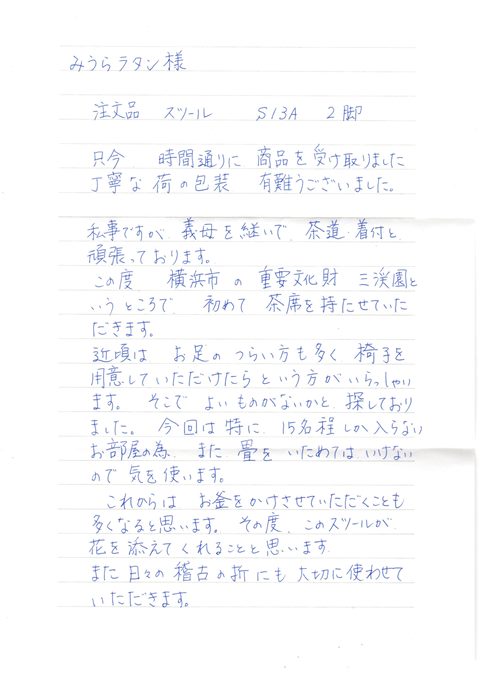 みうらラタン様
注文品 スツール S13A 2脚
只今 時間通りに 商品を受け取りました
丁寧な荷の包装 有難うございました。
私事ですが、義母を継いで、茶道・着付と、
頑張っております。
この度、横浜市の重要文化財 三渓園と
いうところで、初めて 茶席を持たせていた
だきます。
近頃は お足のつらい方も多く 椅子を
用意していただけたらという方がいらっしゃい
ます。そこで よいものがないかと、探しており
ました。今回は特に、15名程しか入らない
お部屋の為、また、畳をいためてはいけない
ので気を使います。
これからは お釜をかけさせていただくことも
多くなると思います。その度、このスツールが、
花を添えてくれることと思います
また日々の稽古の折にも大切に使わせて
いただきます。